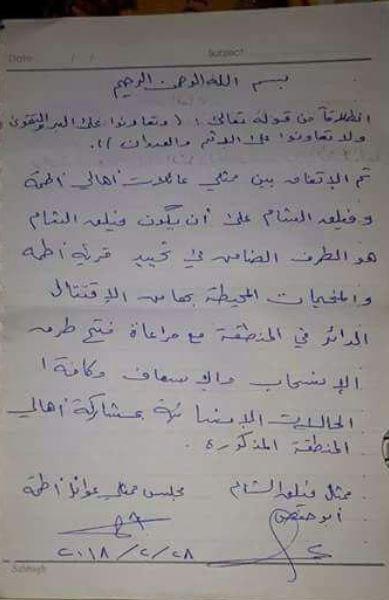 Date / / Subject
بسم الله الرحمن الرحيم
انطلاقاً من قوله تعالى: (وتعاونوا على البر والتقوى
ولا تعاونوا على الاثم والعدوان)).
تم الإتفاق بين ممثلي عائلات أهالي أطمة
وفيلق الشام على أن يكون فيلق الشام
هو الطرف الضامن في تحييد قرية أطمه
والمخيمات المحيطة بها من الإقتتال
الدائر في المنطقة مع مراعاة فتح طرق
الإنسحاب والإسعاف وكافة
الحالات الإنسانية بمشاركة أهالي
المنطقة المذكورة.
ممثل فيلق الشام مجلس ممثلي عوائل أطمة
أبو
٢٠١٨/٢/٢٨